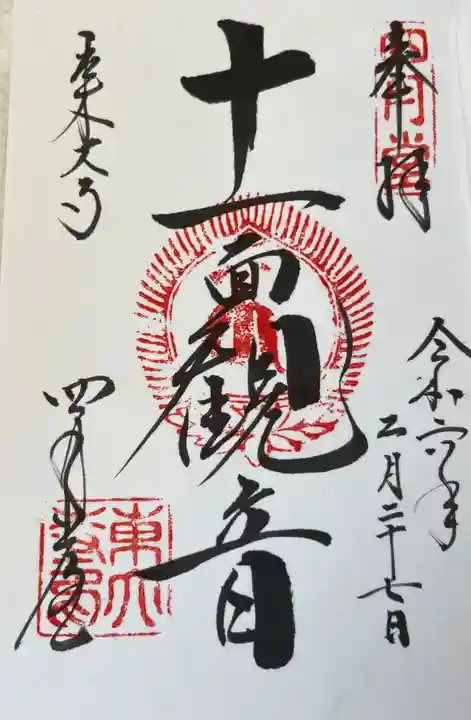 奉拝
四月堂
令和六年
二月二十七日
十一面観音
東大寺
四月堂